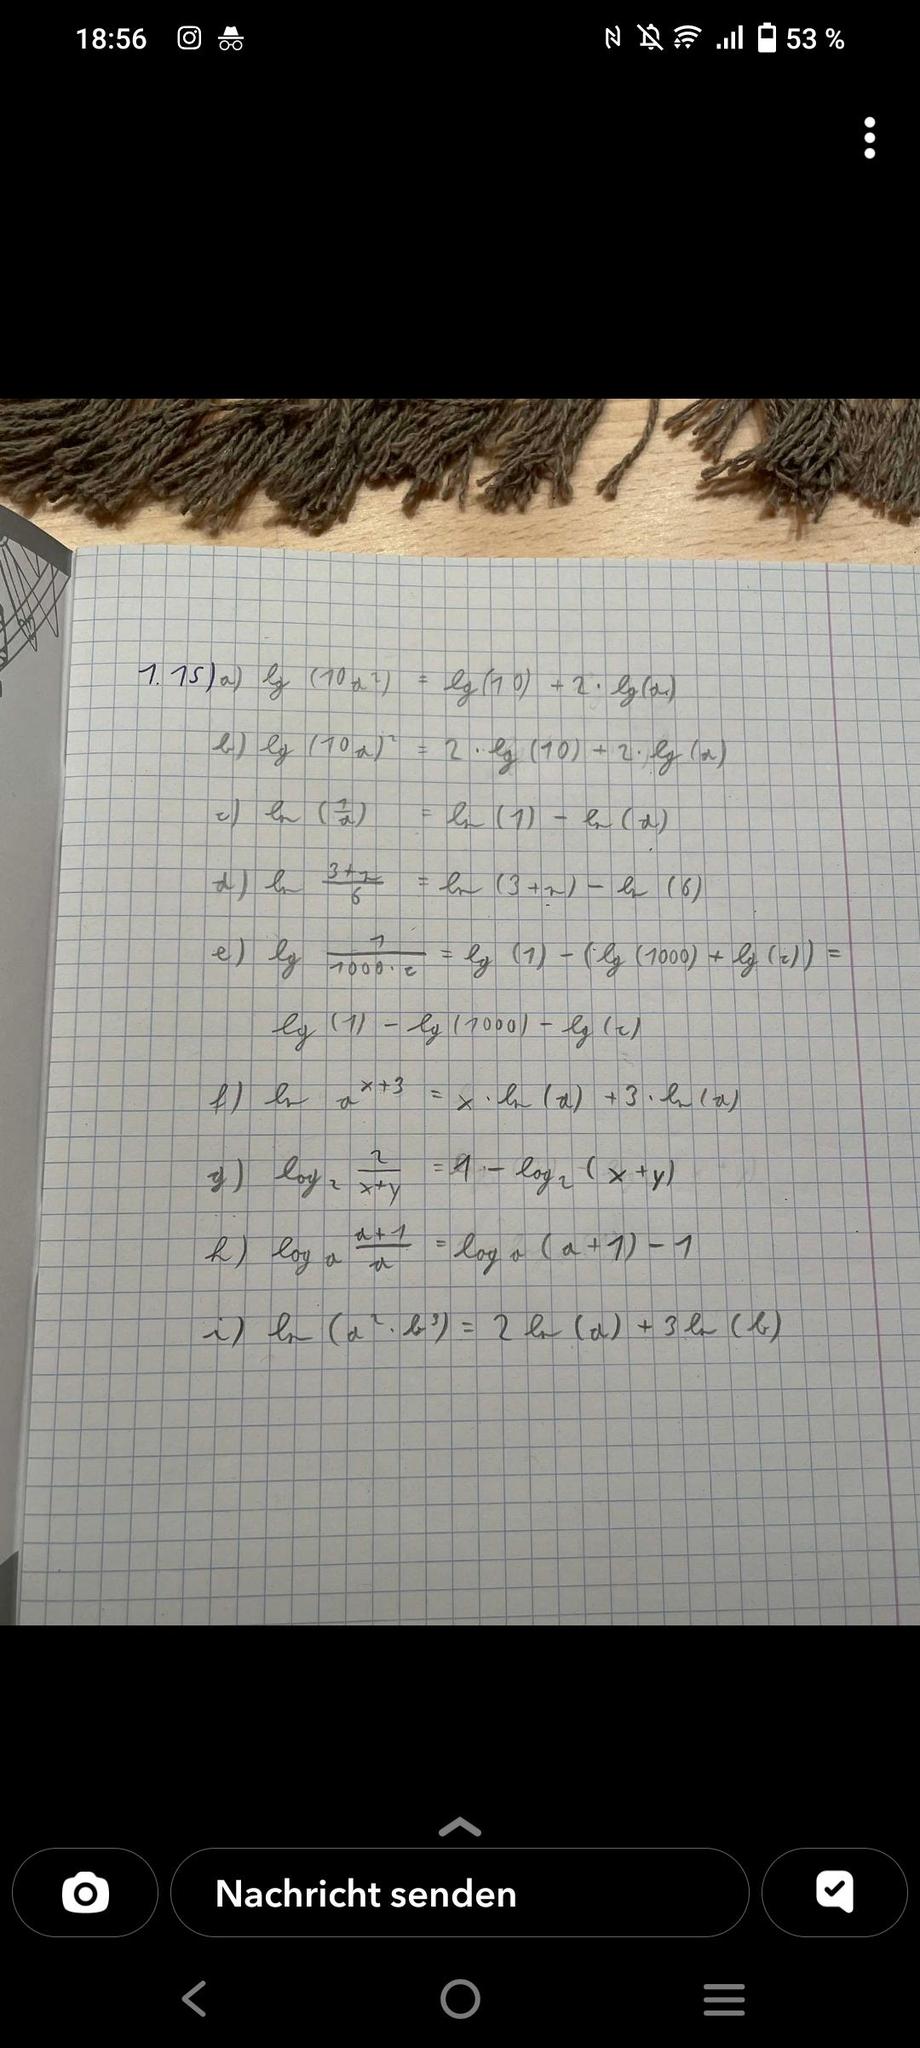 18:56 53 %
1.15) a) lg (10a²) = lg(10) + 2 · lg(a)
b) lg (10a)² = 2 · lg (10) + 2 · lg (a)
c) ln (1/a) = ln (1) - ln (a)
d) ln 3+r/6 = ln (3+r) - ln (6)
e) lg 1/1000·c = lg (1) - (lg (1000) + lg (c)) =
lg (1) - lg (1000) - lg (c)
f) ln a^x+3 = x · ln (a) + 3 · ln (a)
g) log₂ 2/x+y = 1 - log₂ (x+y)
h) logₐ a+1/a = logₐ (a+1) - 1
i) ln (a² · b³) = 2 ln (a) + 3 ln (b)
Nachricht senden